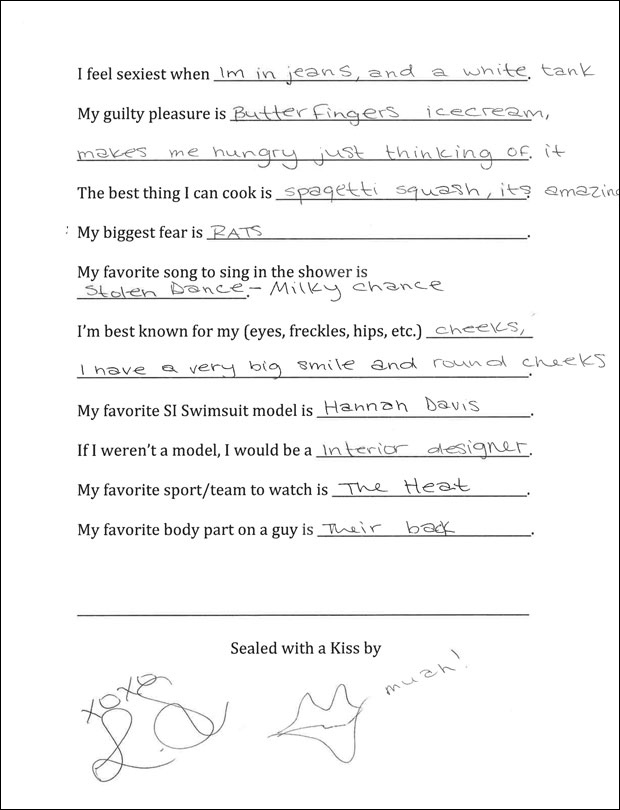 I feel sexiest when Im in jeans, and a white. tank
My guilty pleasure is Butterfingers icecream,
makes me hungry just thinking of. it
The best thing I can cook is spagetti squash, its. amazing
My biggest fear is RATS.
My favorite song to sing in the shower is
Stolen Dance.- Milky chance
I'm best known for my (eyes, freckles, hips, etc.) cheeks,
I have a very big smile and round cheeks.
My favorite SI Swimsuit model is Hannah Davis.
If I weren't a model, I would be a Interior designer.
My favorite sport/team to watch is The Heat.
My favorite body part on a guy is Their back.
Sealed with a Kiss by
xoxo
muah!